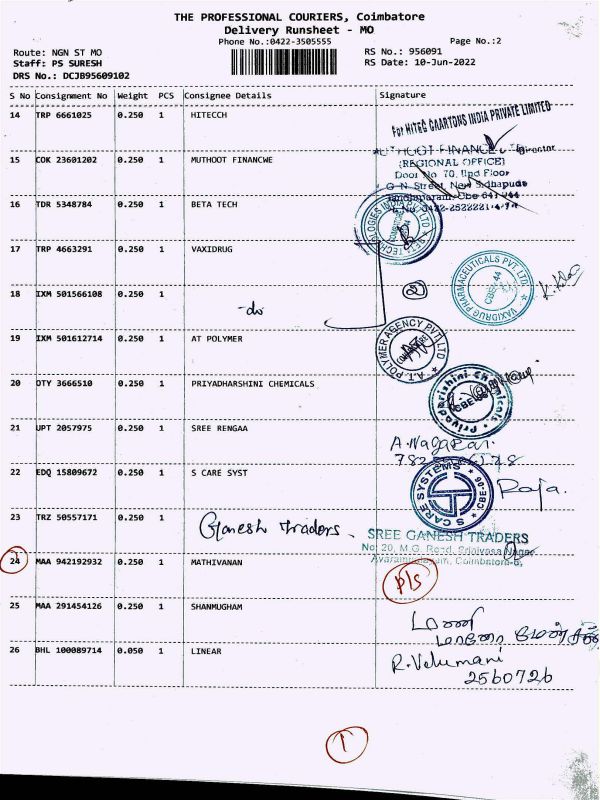 THE PROFESSIONAL COURIERS, Coimbatore
Delivery Runsheet - MO
Phone No.:0422-3505555
Page No.:2
Route: NGN ST MO
Staff: PS SURESH
DRS No.: DCJB95609102
RS No.: 956091
RS Date: 10-Jun-2022
S No Consignment No Weight PCS Consignee Details Signature
14 TRP 6661025 0.250 1 HITECCH
For HITEC CAARTONS INDIA PRIVATE LIMITED
Director
15 COK 23601202 0.250 1 MUTHOOT FINANCWE
MUTHOOT FINANCE
(REGIONAL OFFICE)
Door No 70, IInd Floor
G N Street, New Sidhapudu
16 TDR 5348784 0.250 1 BETA TECH
17 TRP 4663291 0.250 1 VAXIDRUG
VAXIDRUG PHARMACEUTICALS PVT. LTD.
CBE-44
18 IXM 501566108 0.250 1
-do
2
19 IXM 501612714 0.250 1 AT POLYMER
A.T. POLYMER AGENCY PVT LTD
20 OTY 3666510 0.250 1 PRIYADHARSHINI CHEMICALS
Priyadarishini Chemicals
CBE
21 UPT 2057975 0.250 1 SREE RENGAA
A.Nagarar.
22 EDQ 15809672 0.250 1 S CARE SYST
S CARE SYSTEMS
CBE-06
Raja.
23 TRZ 50557171 0.250 1 Ganesh Traders.
SREE GANESH TRADERS
No: 20, M.G. Road, Srinivasa Nagar
Coimbatore-5,
24 MAA 942192932 0.250 1 MATHIVANAN
P/S
25 MAA 291454126 0.250 1 SHANMUGHAM
26 BHL 100089714 0.050 1 LINEAR
R.Velumani
2560726
1